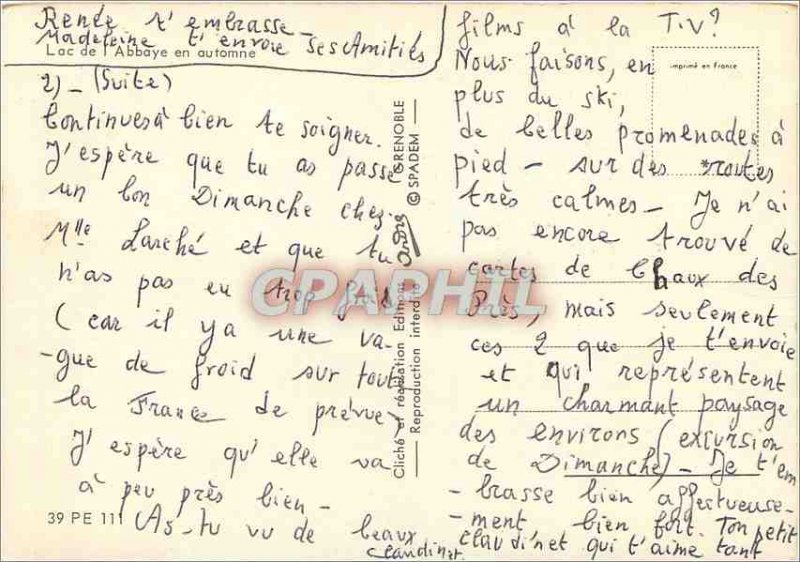 Renée t'embrasse -
Madeleine t'envoie ses Amitiés
Lac de l'Abbaye en automne
2) - (Suite)
Continues à bien te soigner.
J'espère que tu as passé
un bon Dimanche chez
Mlle Larché et que tu
n'as pas eu trop froid
(car il y a une va-
-gue de froid sur toute
la France de prévue
J'espère qu'elle va
à peu près bien -
As-tu vu de beaux
Claudinet.
39 PE 111
Cliché et réalisation Editions André GRENOBLE
Reproduction interdite © SPADEM
CPAPHIL
films à la T.V?
imprimé en France
Nous faisons, en
plus du ski,
de belles promenades à
pied - sur des routes
très calmes - Je n'ai
pas encore trouvé de
cartes de Chaux des
Près, mais seulement
ces 2 que je t'envoie
et qui représentent
un charmant paysage
des environs (excursion
de Dimanche) - Je t'em
-brasse bien affectueuse-
-ment, bien fort. Ton petit
Claudinet qui t'aime tant